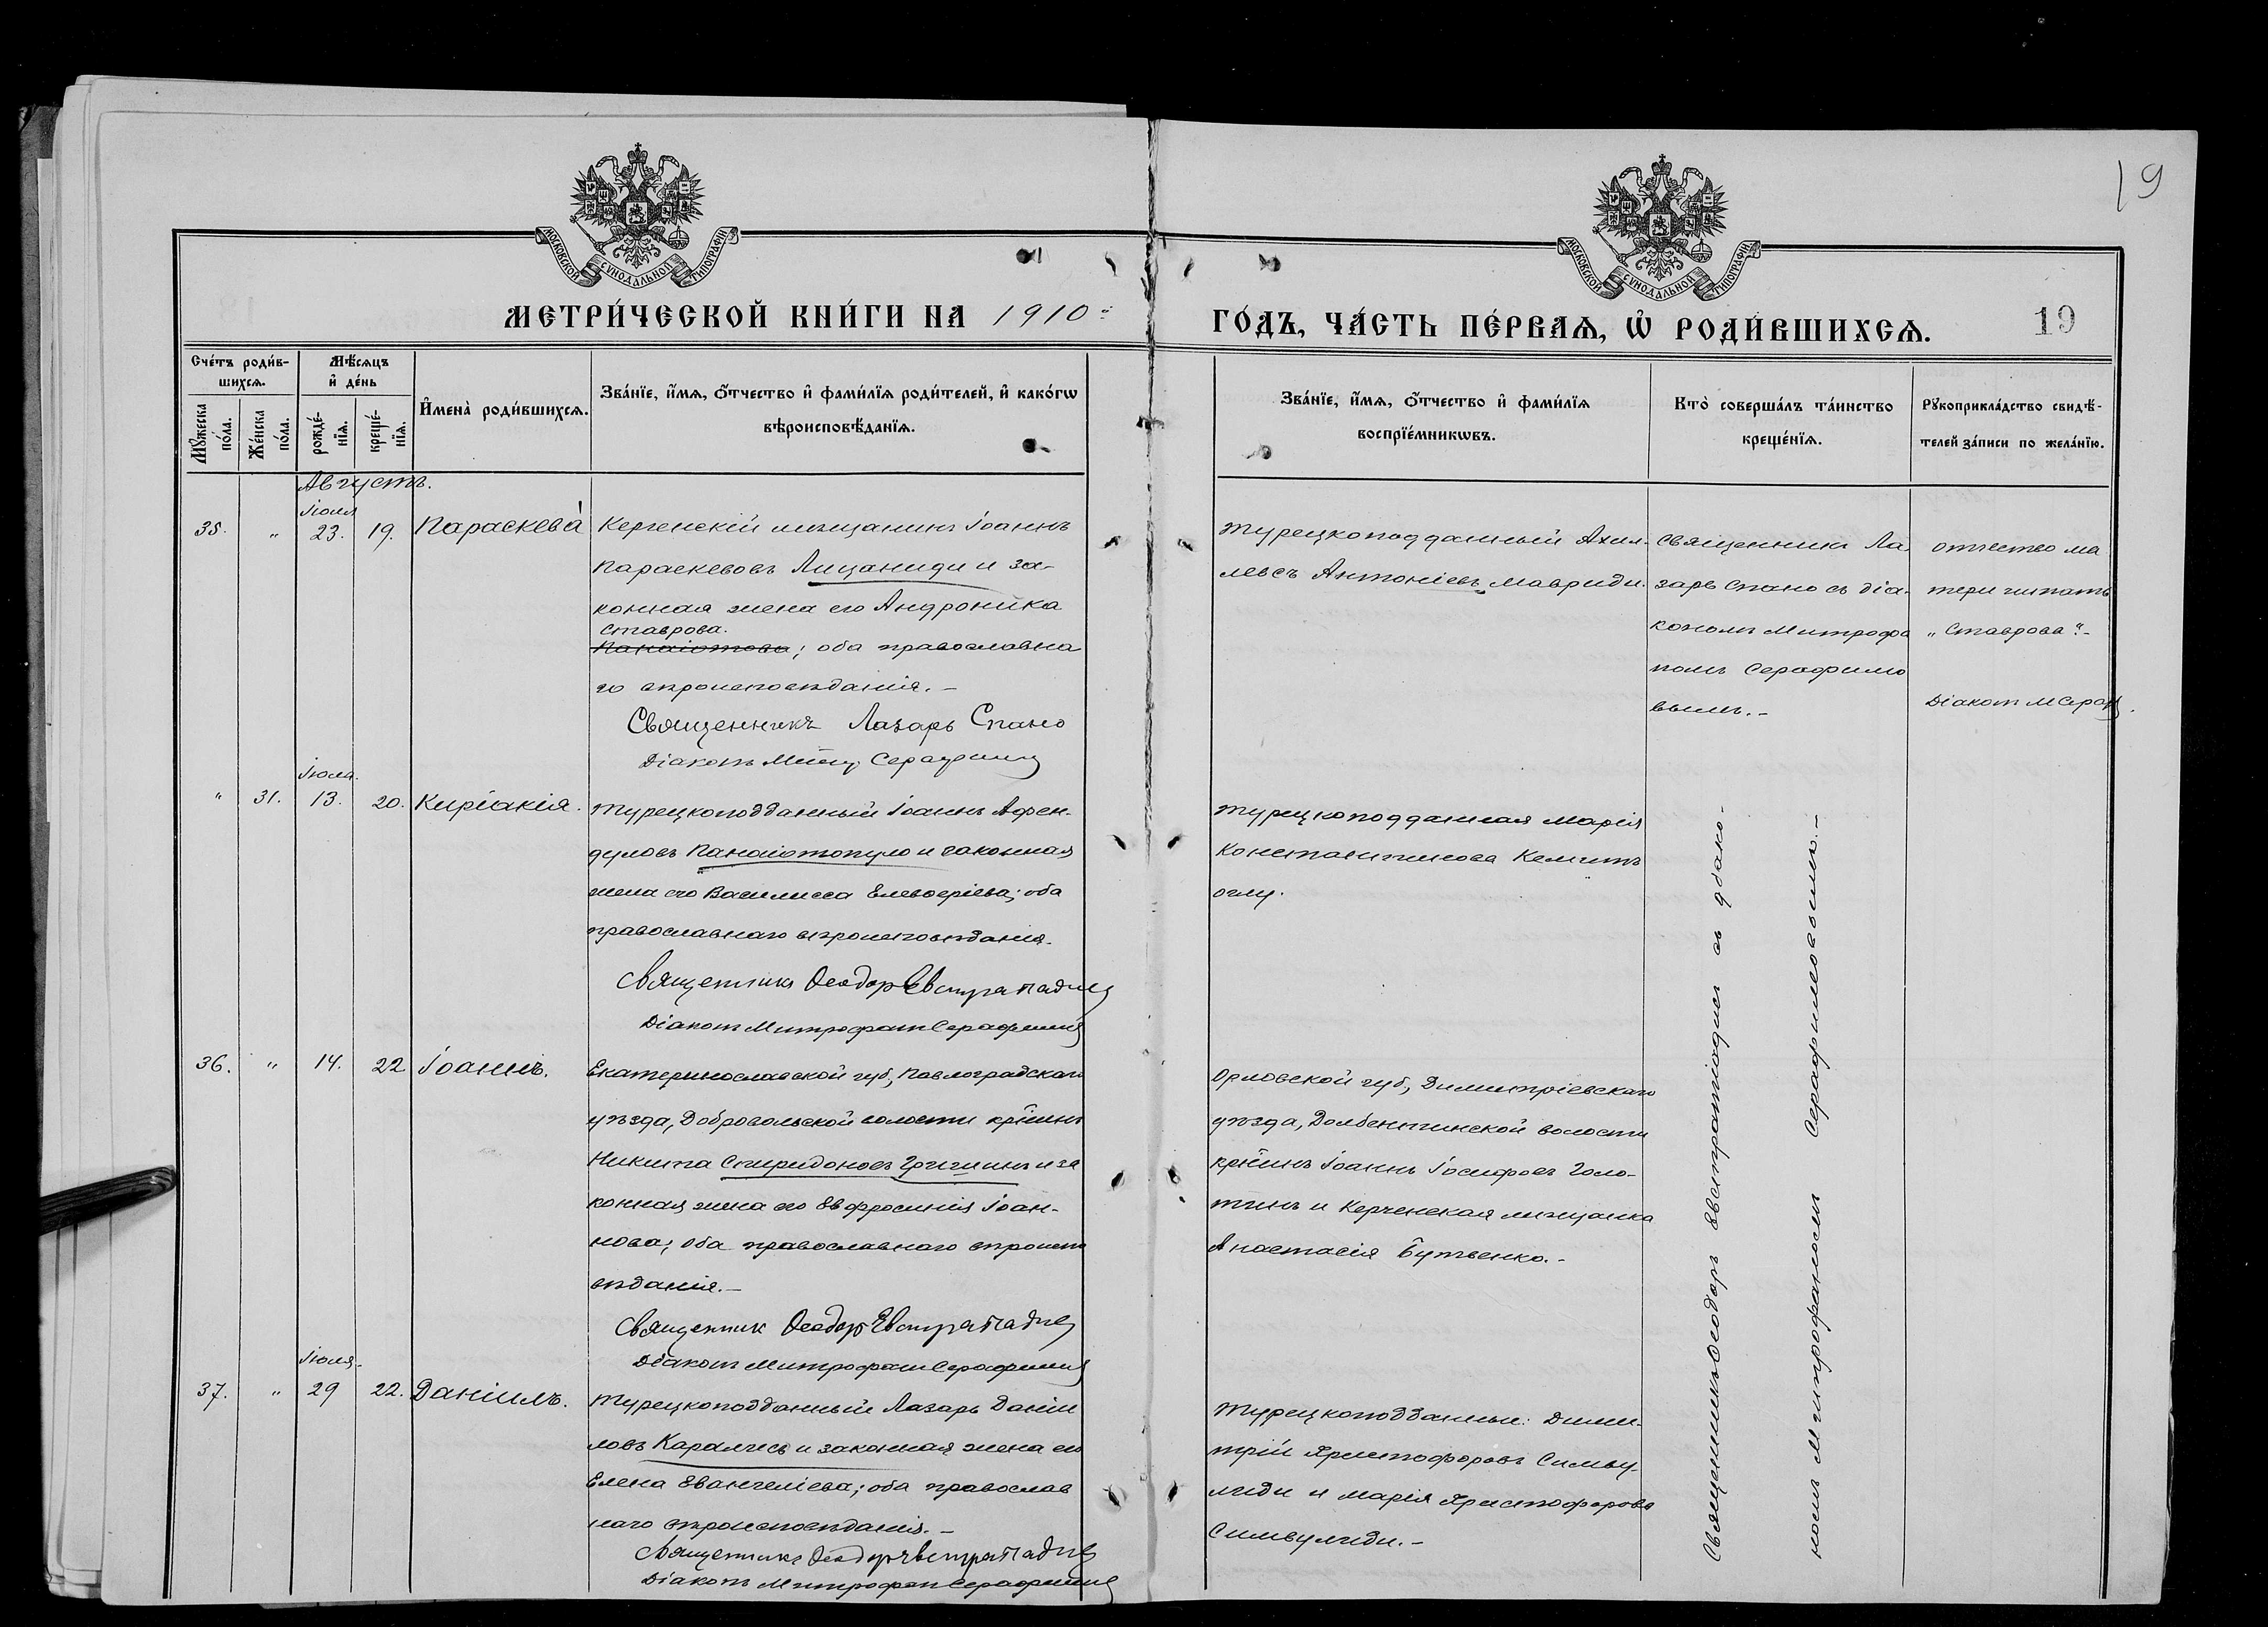 19
МОСКОВСКОЙ СѴНОДАЛЬНОЙ ТИПОГРАФІИ
МОСКОВСКОЙ СѴНОДАЛЬНОЙ ТИПОГРАФІИ
МЕТРИ́ЧЕСКОЙ КНИ́ГИ НА 1910й
ГО́ДЪ, ЧА́СТЬ ПЕ́РВАѦ, Ѡ҆ РОДИ́ВШИХСѦ.
19
Сче́тъ роди́в-
шихсѧ.
Мꙋ́жеска по́ла.
Же́нска по́ла.
Мѣ́сѧцъ
и҆ де́нь
рожде́-
нїѧ.
креще́-
нїѧ.
И҆мена̀ роди́вшихсѧ.
Зва́нїе, и҆́мѧ, ѻ҆́тчество и҆ фами́лїѧ роди́телей, и҆ како́гѡ
вѣроисповѣ́данїѧ.
Зва́нїе, и҆́мѧ, ѻ҆́тчество и҆ фами́лїѧ
воспрїе́мникѡвъ.
Кто̀ соверша́лъ та́инство
креще́нїѧ.
Рꙋкоприкла́дство свидѣ́-
телей за́писи по жела́нїю.
Августъ.
Іюля
35. " 23. 19. Параскева̀
Керченскій мѣщанинъ Іоаннъ
Параскевовъ Лицаниди и за-
конная жена его Андроника
Ставрова.
Панаіотова; оба православна
го вѣроисповѣданія.-
Священникъ Лазарь Спано
Діаконъ Митр. Серафимо
Турецкоподданный Ахил-
левсъ Антоніевъ Мавриди.
Священникъ Ла
зарь Спано съ діа-
кономъ Митрофа
номъ Серафимо
вымъ.-
Отчество ма
тери читать
„Ставрова“.-
Діаконъ М Сераф.
Іюля.
" 31. 13. 20. Киріакія.
Турецкоподданный Іоаннъ Афен-
дуловъ Панаіотопуло и законная
жена его Василисса Елевѳеріева; оба
православнаго вѣроисповѣданія.
Священникъ Ѳеодоръ Евстратіади
Діаконъ Митрофанъ Серафимо
Турецкоподданная Марія
Константинова Кемитъ
оглу.
Священникъ Ѳеодоръ Евстратіадисъ съ діако-
номъ Митрофаномъ Серафимовымъ.-
36. " 14. 22 Іоаннъ.
Екатеринославской губ., Павлоградскаго
уѣзда, Добровольской волости кр̃нинъ
Никита Спиридоновъ Гричинъ и за
конная жена его Евфросинія Іоан-
нова; оба православнаго вѣроиспо
вѣданія.-
Священник Ѳеодор Евстратіади
Діаконъ Митрофанъ Серафимо
Орловской губ., Димитріевскаго
уѣзда, Долбенкинской волости
кр̃нинъ Іоаннъ Іосифовъ Голо-
тинъ и Керченская мѣщанка
Анастасія Бутвенко.-
Іюля.
37. " 29 22. Даніилъ.
Турецкоподданный Лазарь Даніи
ловъ Каралчесъ и законная жена его
Елена Евангеліева; оба православ
наго вѣроисповѣданія.-
Священникъ Ѳеодоръ Евстратіади
Діаконъ Митрофанъ Серафимо
Турецкоподданные: Дими-
трій Христофоровъ Симву-
лиди и Марія Христофорова
Симвулиди.-